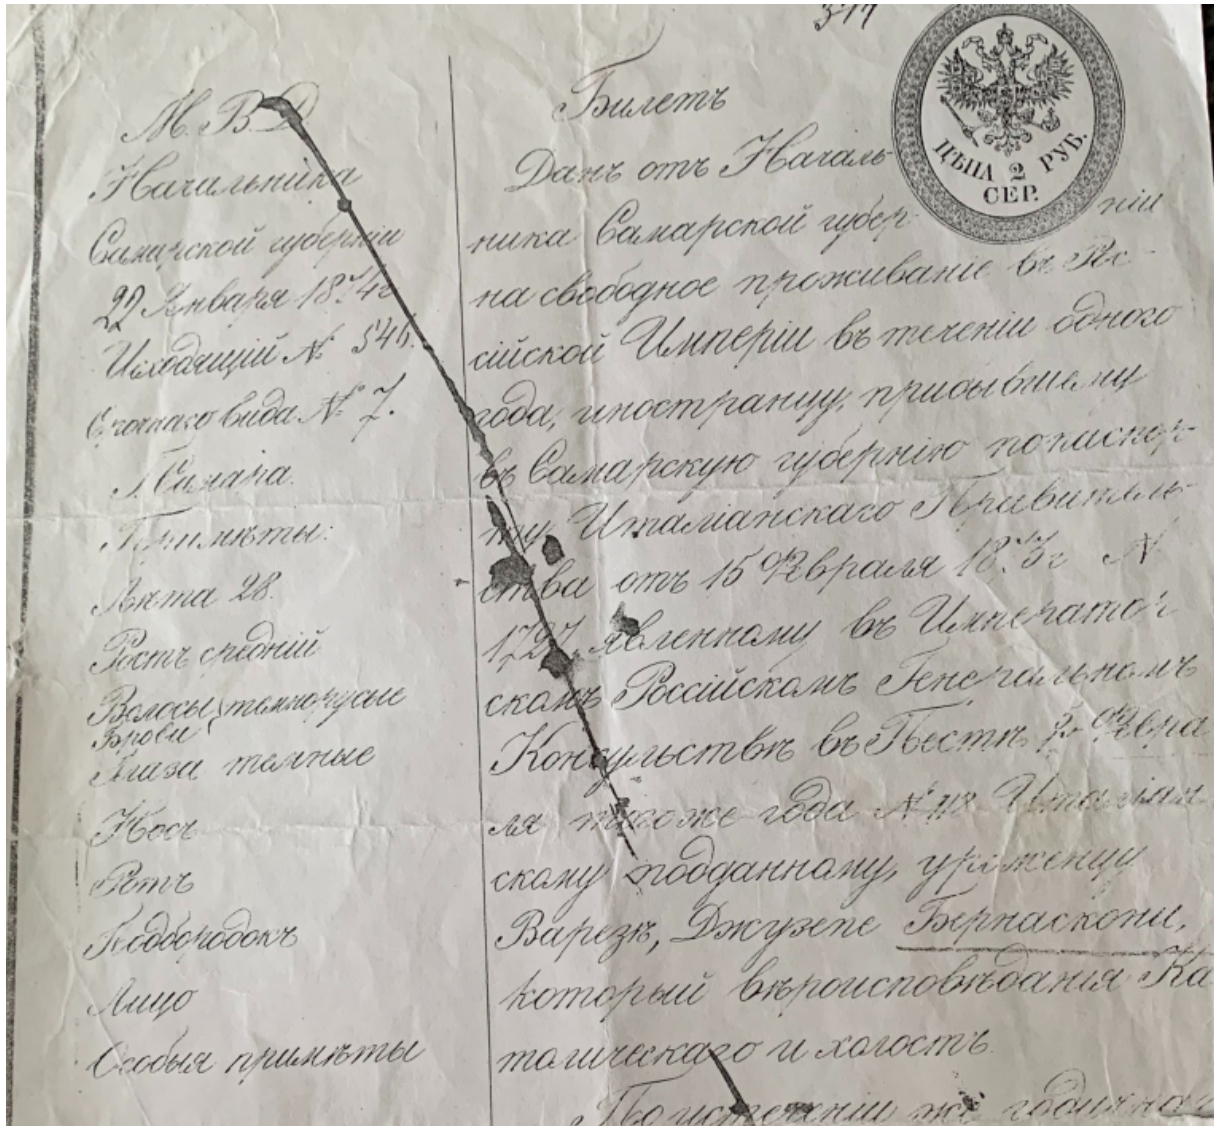 377
М. В. Д
Начальника
Самарской губерніи
22 Января 1874г
Исходящій № 546.
Срочнаго вида № 7.
г. Самара.
Примѣты:
Лѣта 28.
Ростъ средній
Волосы темнорусые
Брови
Глаза темные
Носъ
Ротъ
Подбородокъ
Лицо
Особыя примѣты
Билетъ
Данъ отъ Началь-
ника Самарской губер- ніи
на свободное проживаніе въ Рос-
сійской Имперіи въ теченіи одного
года, иностранцу, прибывшему
въ Самарскую губернію по паспор-
ту Италіанскаго Правитель-
ства отъ 15 Февраля 1873г №
1727, явленному въ Император
скомъ Россійскомъ Генеральномъ
Консульствѣ въ Пестѣ Февра
ля того же года № 118 Италіян
скому подданному, уроженцу
Варезѣ, Джузепе Бернаскони,
который вѣроисповѣданія Ка
толическаго и холостъ.
По истеченіи же годичнаго
ЦѢНА 2 РУБ.
СЕР.